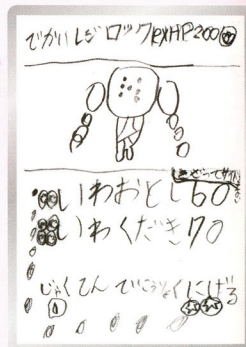 でかいレジロックexHP200
いわおとし60
いわくだき70
じゃくてん ていこうりょく にげる